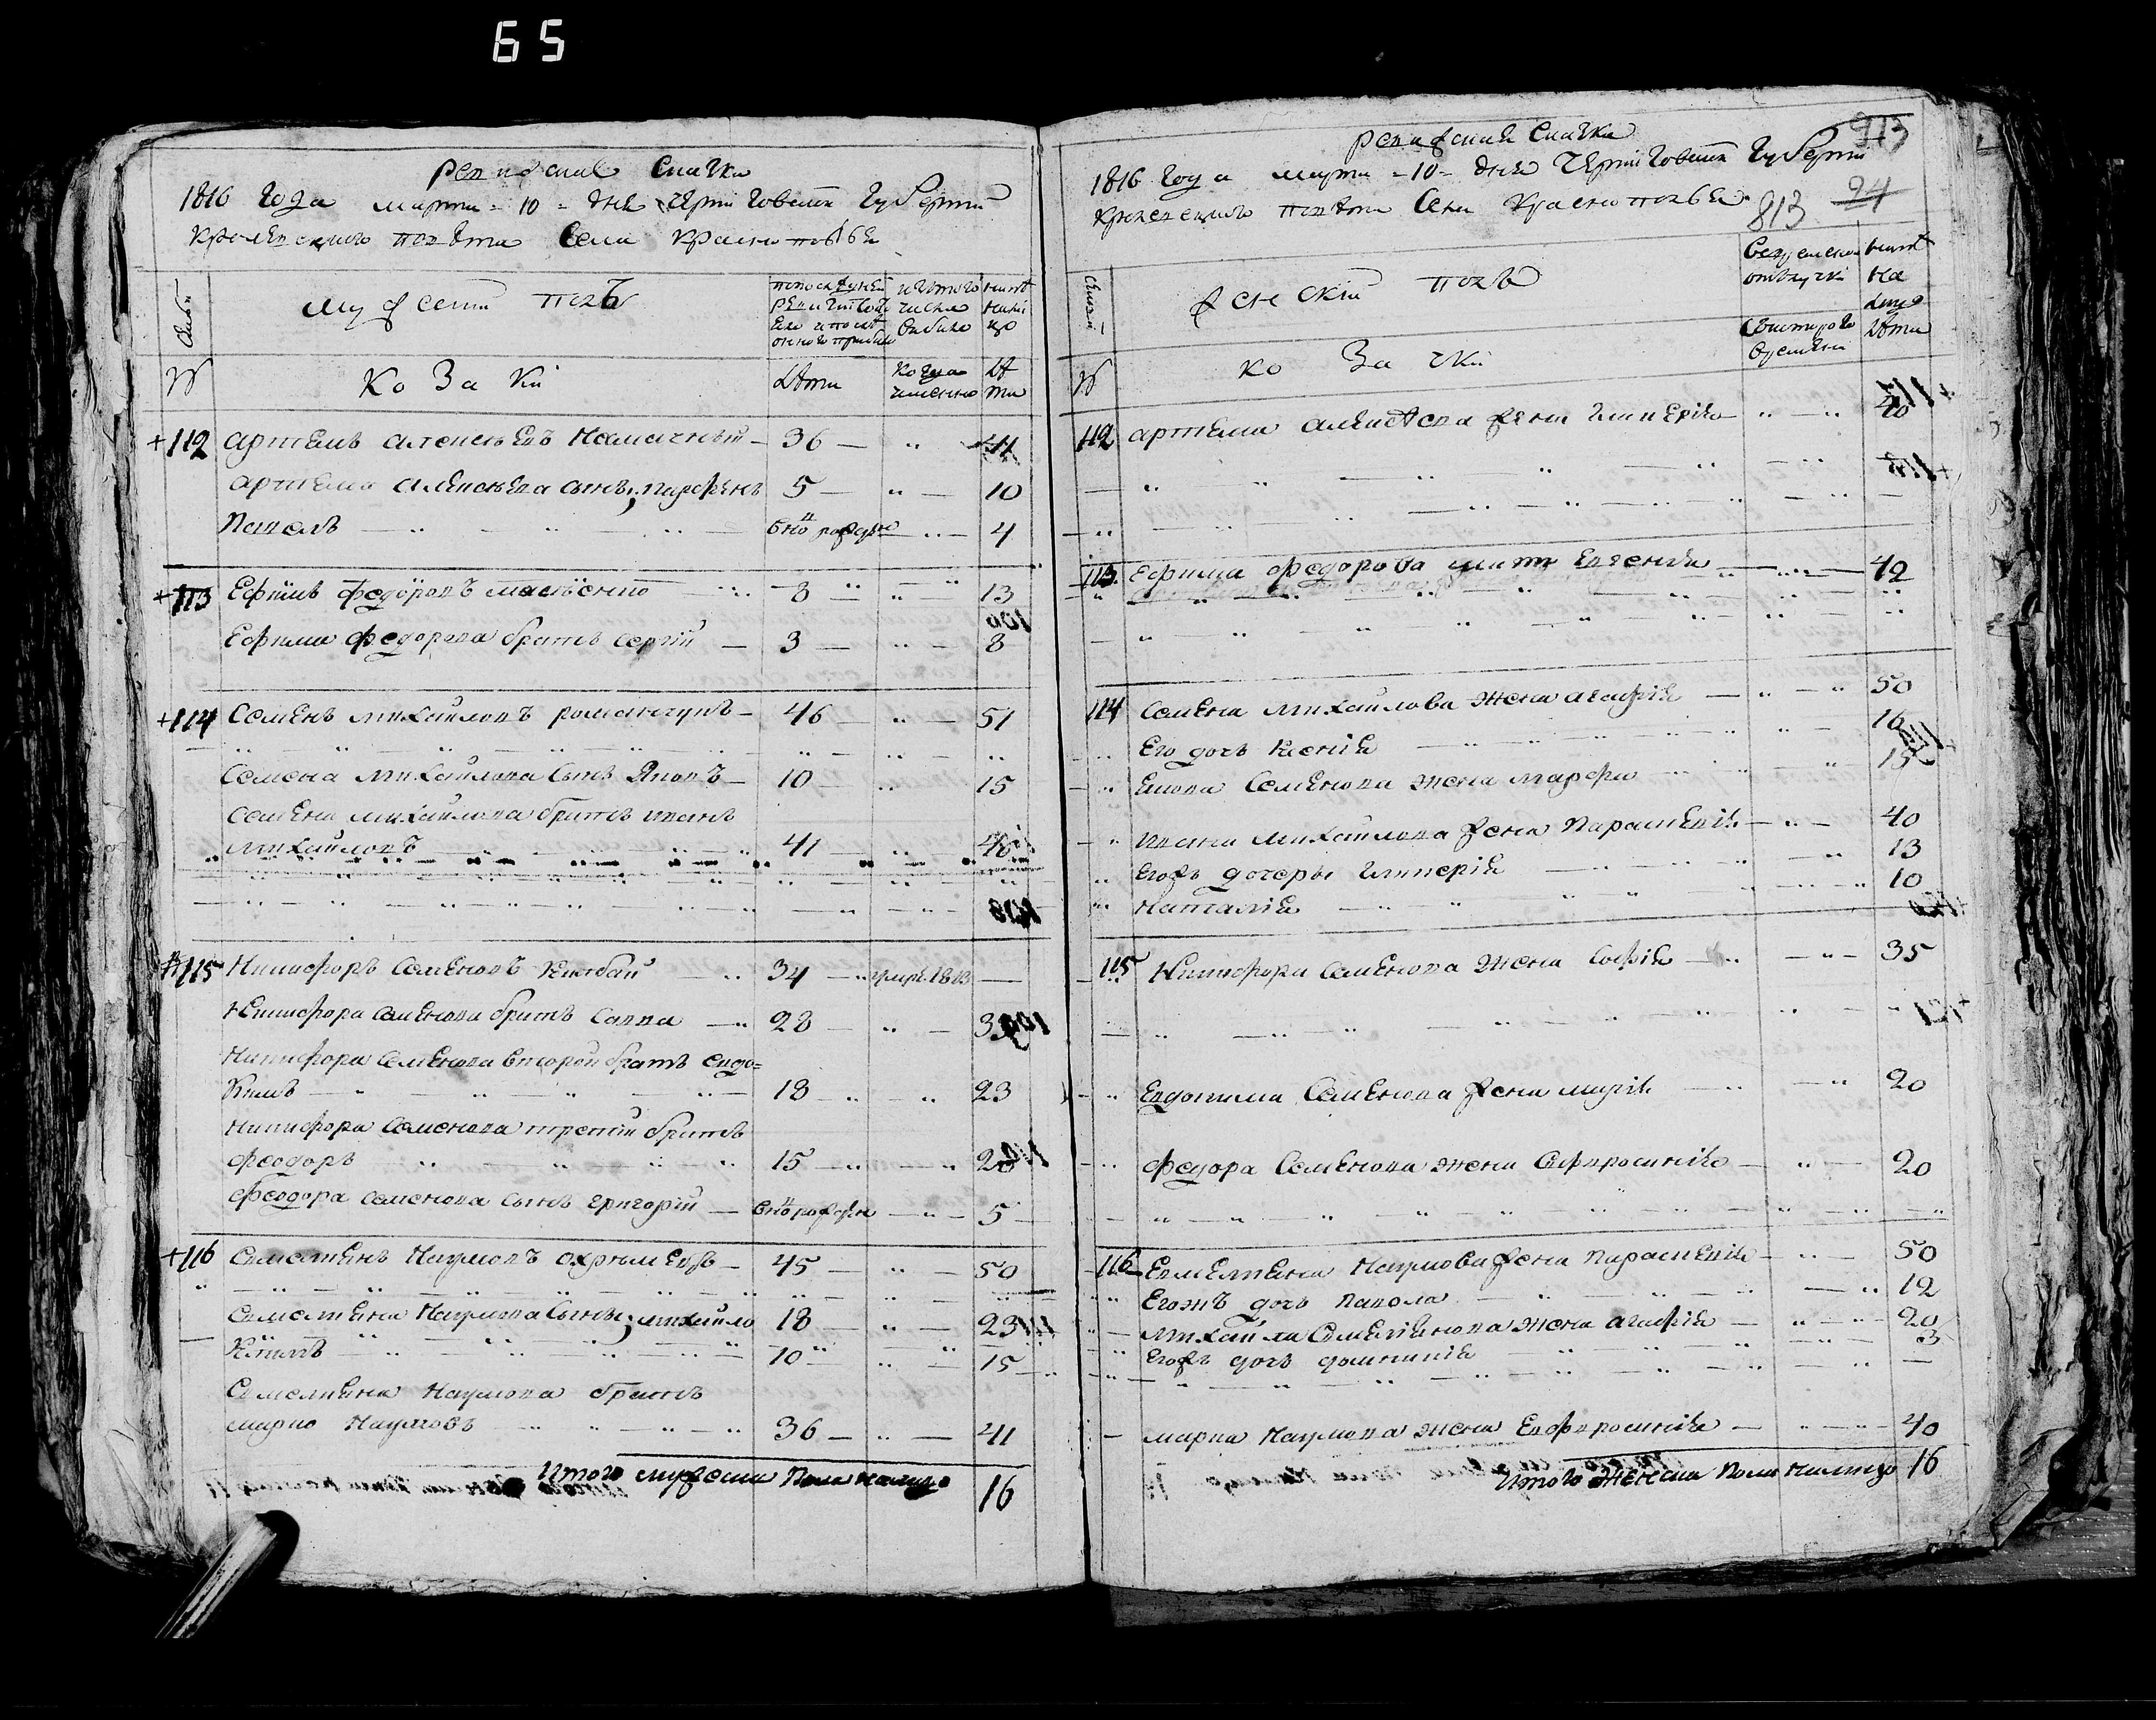 65
Ревизская Сказка
1816 года марта = 10 = дня Черниговской Губернии
Кролевецкого повѣта Села Краснополья
Семьи
мужеский полъ
по последней ревизіи состояло и после оной прибыло
изъ того числа выбыло
нынѣ налицо
№
козаки
Лѣта
когда именно
Лѣта
+112 Артемъ Алексѣевъ 36 — " 41
Артема Алексѣева сынъ, Парфенъ 5 — " — 10
Павелъ вно рожден — " — 4
+113 Ефимъ Федоровъ 8 — " — 13
Ефима Федорова братъ Сергій — 3 — " — 8
+114 Семенъ Михайловъ Романчукъ — 46 — " — 51
Семена Михайлова Сынъ Яковъ — 10 — " 15
Семена Михайлова братъ Иванъ
Михайловъ 41 — " 46
115 Никифоръ Семеновъ 34 — " умре. 1813 —
Никифора Семенова братъ Савва — " 28 — " — 33
Никифора Семенова второй братъ Евдо=
кимъ 18 — " " 23
Никифора Семенова третій братъ
Феодоръ 15 — " — " 20
Феодора Семенова Сынъ Григорій — вно рожден — " — 5
+116 Емельянъ Наумовъ — 45 — " — 50
Емельяна Наумова Сыны, Михайло 18 " — 23
Климъ 10 " " — 15
Емельяна Наумова братъ
Марко Наумовъ 36 — " — 41
Итого мужеска Пола налицо 16
913
Ревизская Сказка
1816 года марта = 10 = дня Черниговской Губерніи
Кролевецкого повѣта Села Краснополья
813 24
Семьи
женскій полъ
Во временной отлучкѣ
нынѣ на лицо
№
козачки
Съ котораго времени
Лѣта
112 Артема Алексѣева жена Гликерія — " — " 40
113 Ефима Федорова мать Евгенія — " — 42
114 Семена Михайлова жена Агафія — " — " 50
Его дочь Ксенія 16
Якова Семенова жена Марфа 15
Ивана Михайлова жена Параскевія — " — 40
Егожъ дочеры Гликерія 13
Наталія 10
115 Никифора Семенова жена Софія — " — 35
Евдокима Семенова жена Марія 20
Федора Семенова жена Евфросинія — " — 20
116 Емельяна Наумова жена Параскевія — " — 50
Егожъ дочь 12
Михайла Емельянова жена Агафія — " — 20
Егожъ дочь Домникія 3
Марка Наумова жена Евфросинія — " — " — 40
Итого женска Пола налицо 16